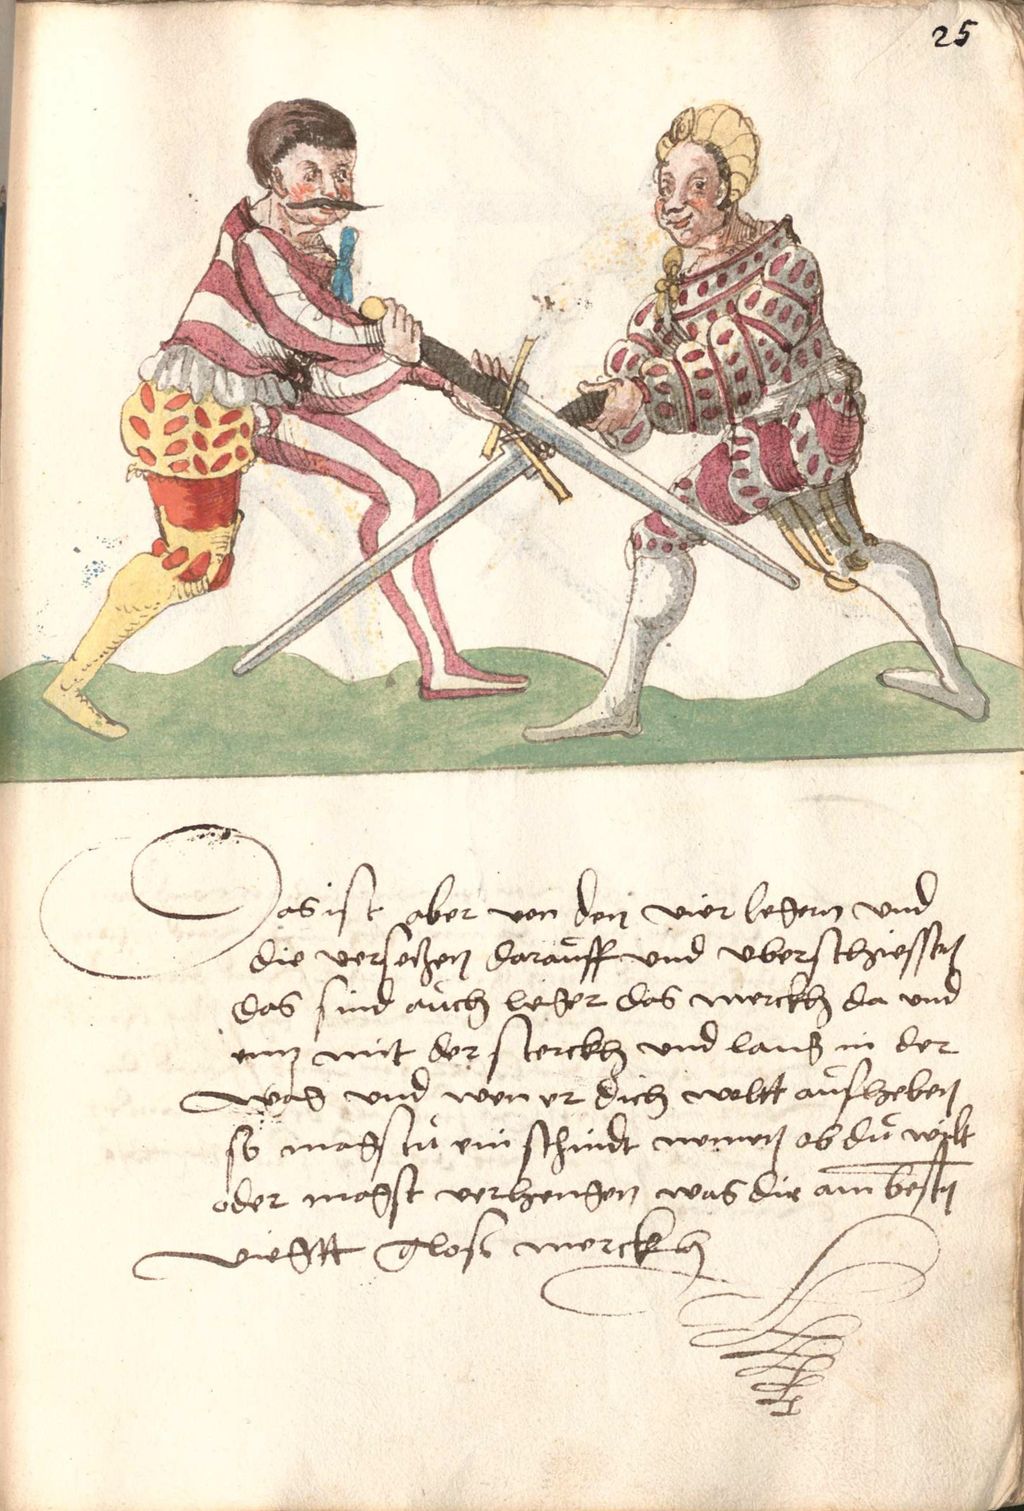 25
Das ist aber von den vier legern und
die versetzen darauff und uberschiessen
das sind auch leger das merckh da und
 mit der sterckh und lang in der
wag und wen er dich woltt aufheben
so magstu ein schindt nemen ob du wilt
oder magst verhengen was die am besten
viegtt glosi merckh